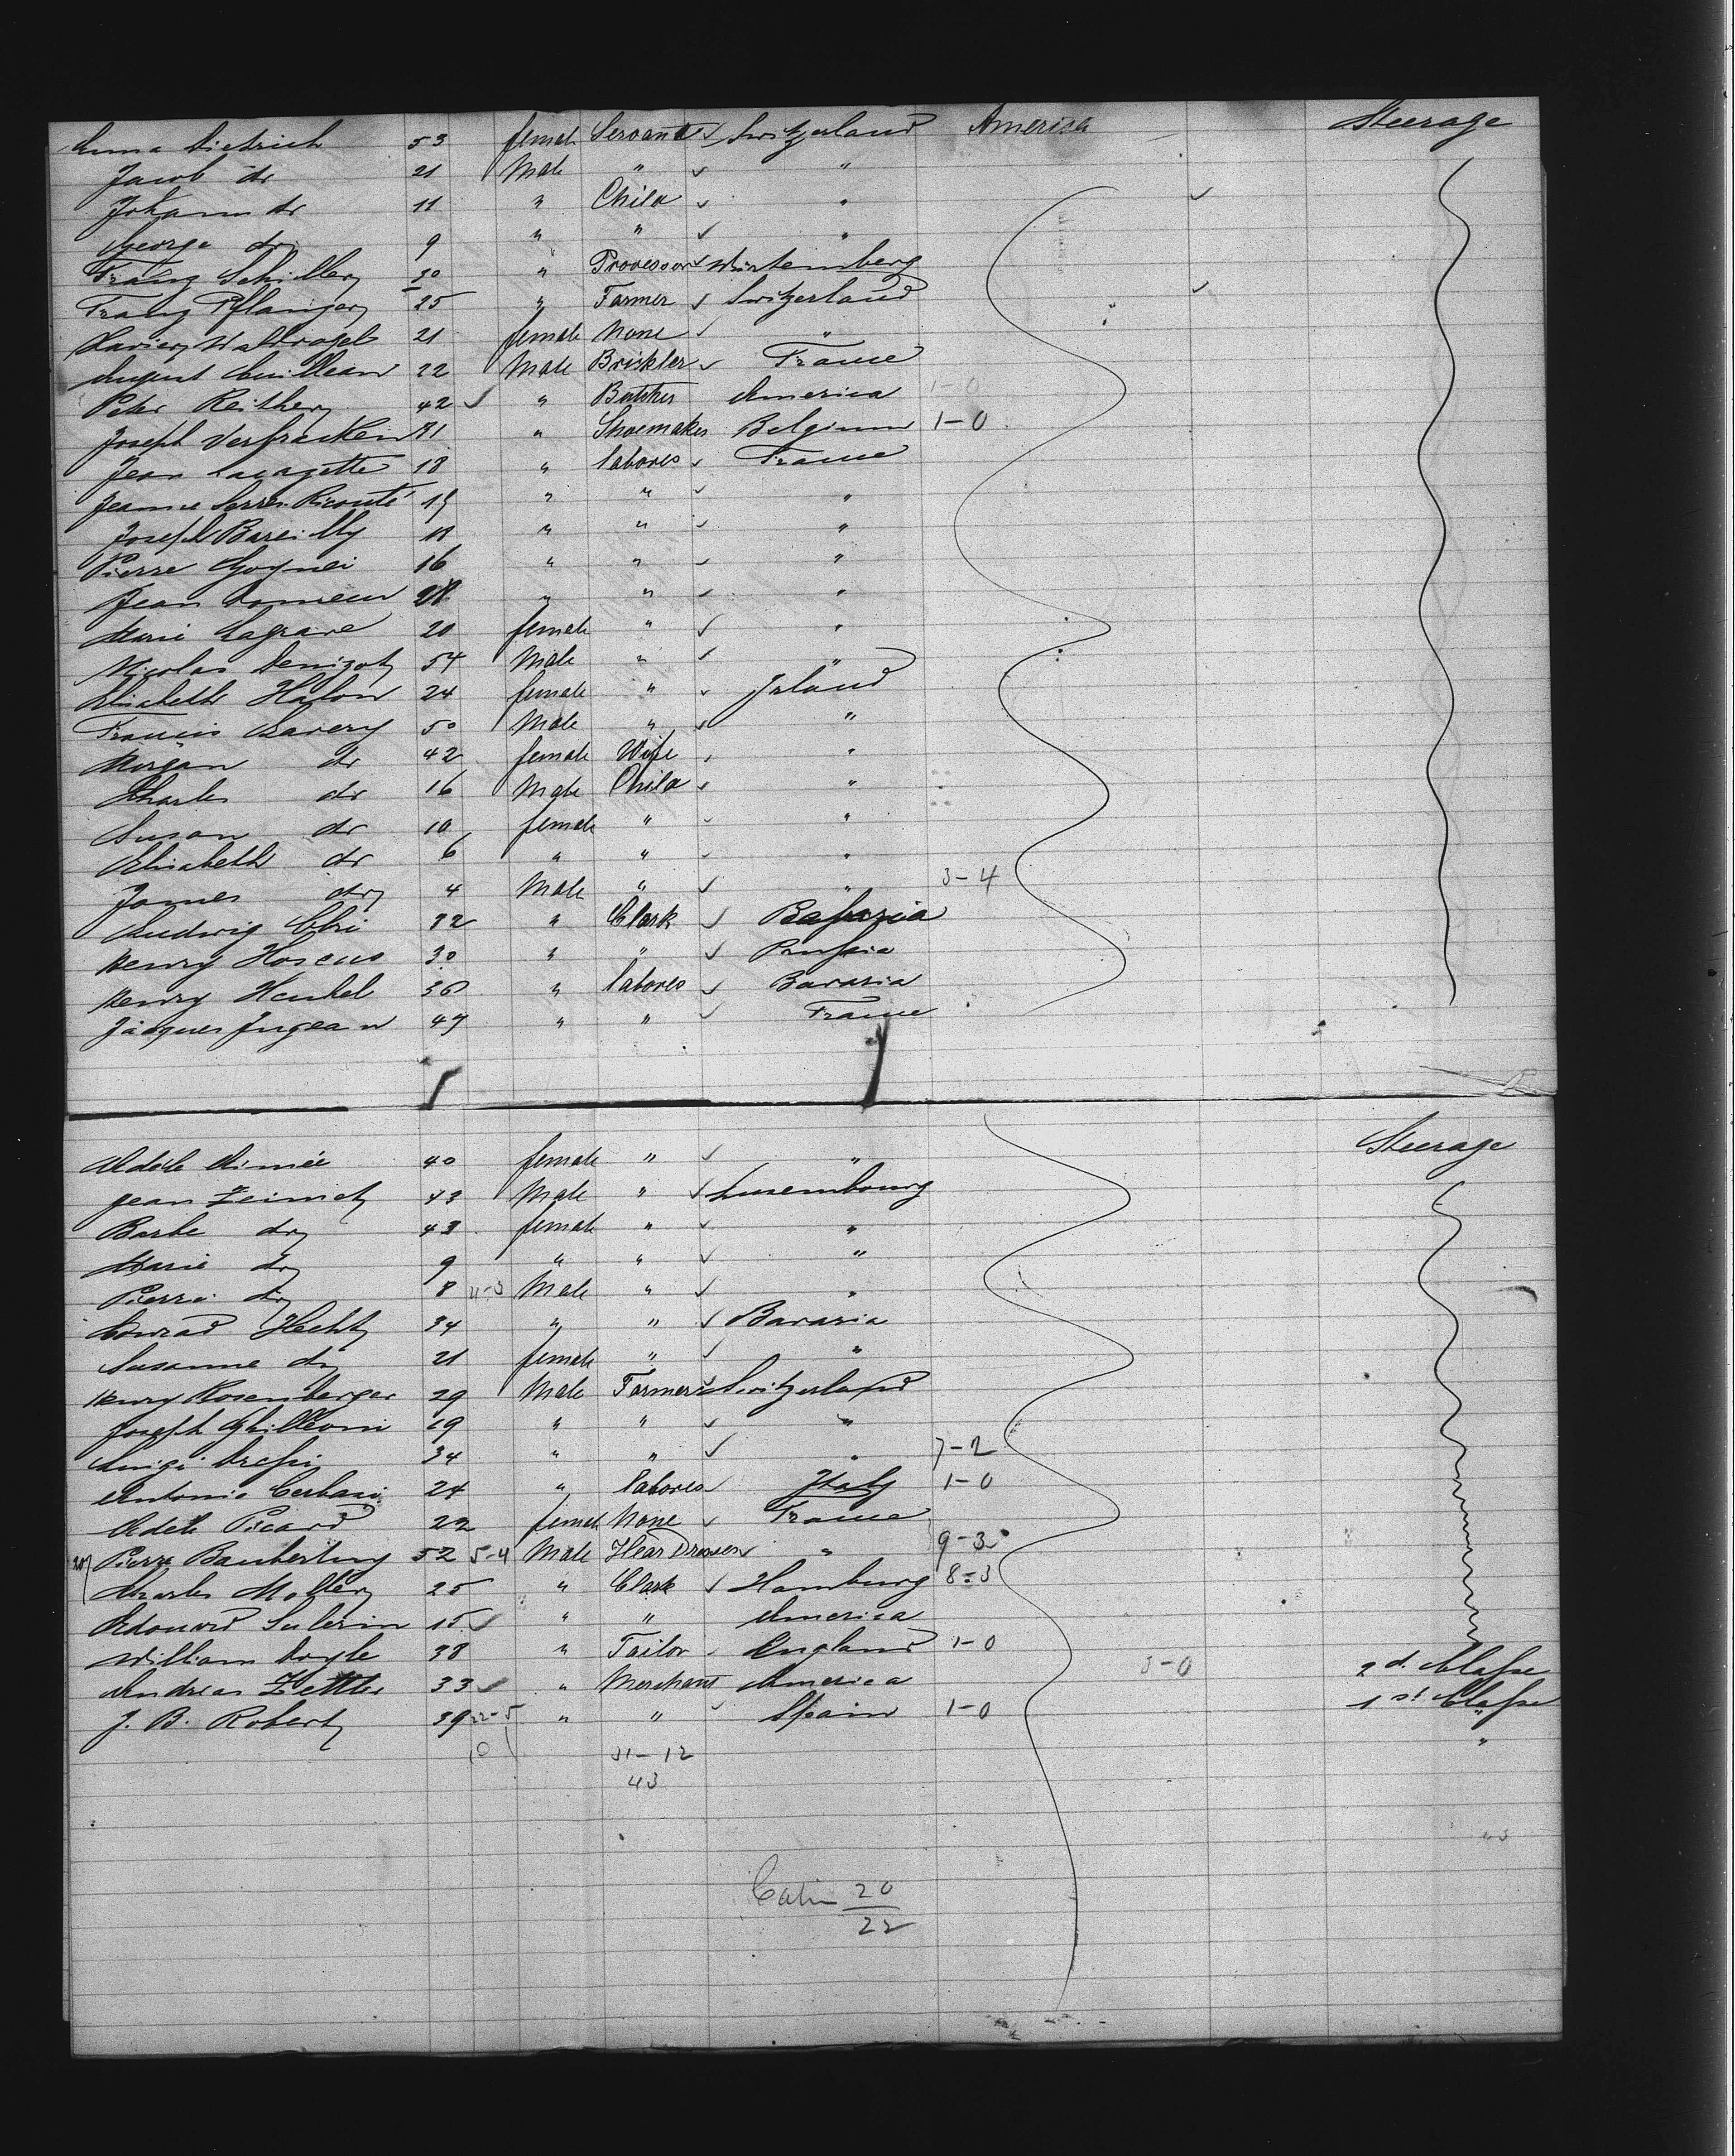 Anna Dietrich 53 female Servant Switzerland America Steerage
Jacob do 21 Male " "
Johann do 11 " Child "
George do 9 " " "
Franz Schiller 30 " Provessor Wirtemberg
Franz Pflanger 25 " Farmer Switzerland
Xavier Waldvogel 21 female None "
August 22 Male Brickler France
Peter Reither 42 " Butcher America
Joseph Verbracken " Shoemaker Belgium 1-0
Jean Lacazette 18 " labores France
Jeanne " " "
Joseph Bareilly 18 " " "
Pierre 16 " " "
Jean " " "
Marie Lagrave 20 female " "
Nicolas Denizot 54 Male " "
Elisabeth 24 female " Irland
Francis Savery 50 Male " "
Morgan do 42 female Wife "
Charles do 16 Male Child "
Susan do 10 female " "
Elisabeth do 6 " " "
James do 4 Male " " 3-4
Ludwig 32 " Clark Bavaria
Henry 30 " " Prussia
Henry Henkel 36 " labores Bavaria
Jacques 47 " " France
Adéle Aimée 40 female " " Steerage
Jean Zeimetz 43 Male " Luxembourg
Barbe do 43 female " "
Marie do 9 " " "
Pierre do 8 11-3 Male " "
Conrad Hecht 34 " " Bavaria
Susanne do 21 female " "
Henry Rosenberger 29 Male Farmer Switzerland
Joseph Ghilleoni 19 " " "
Luigi 34 " " " 7-2
Antonio 24 " labores Italy 1-0
Adéle Picard 22 female None France
Pierre 52 5-4 Male Hear Dresser " 9-3
Charles Moller 25 " Clark Hamburg 8-3
Edouard 15 " " America
William Doyle 38 " Tailor England 1-0
Andreas Zettler 33 " Merchant America 3-0 2d. Classe
J. B. Robert 39 22-5 " " Spain 1-0 1st Classe
10 31-12 "
43
20
22